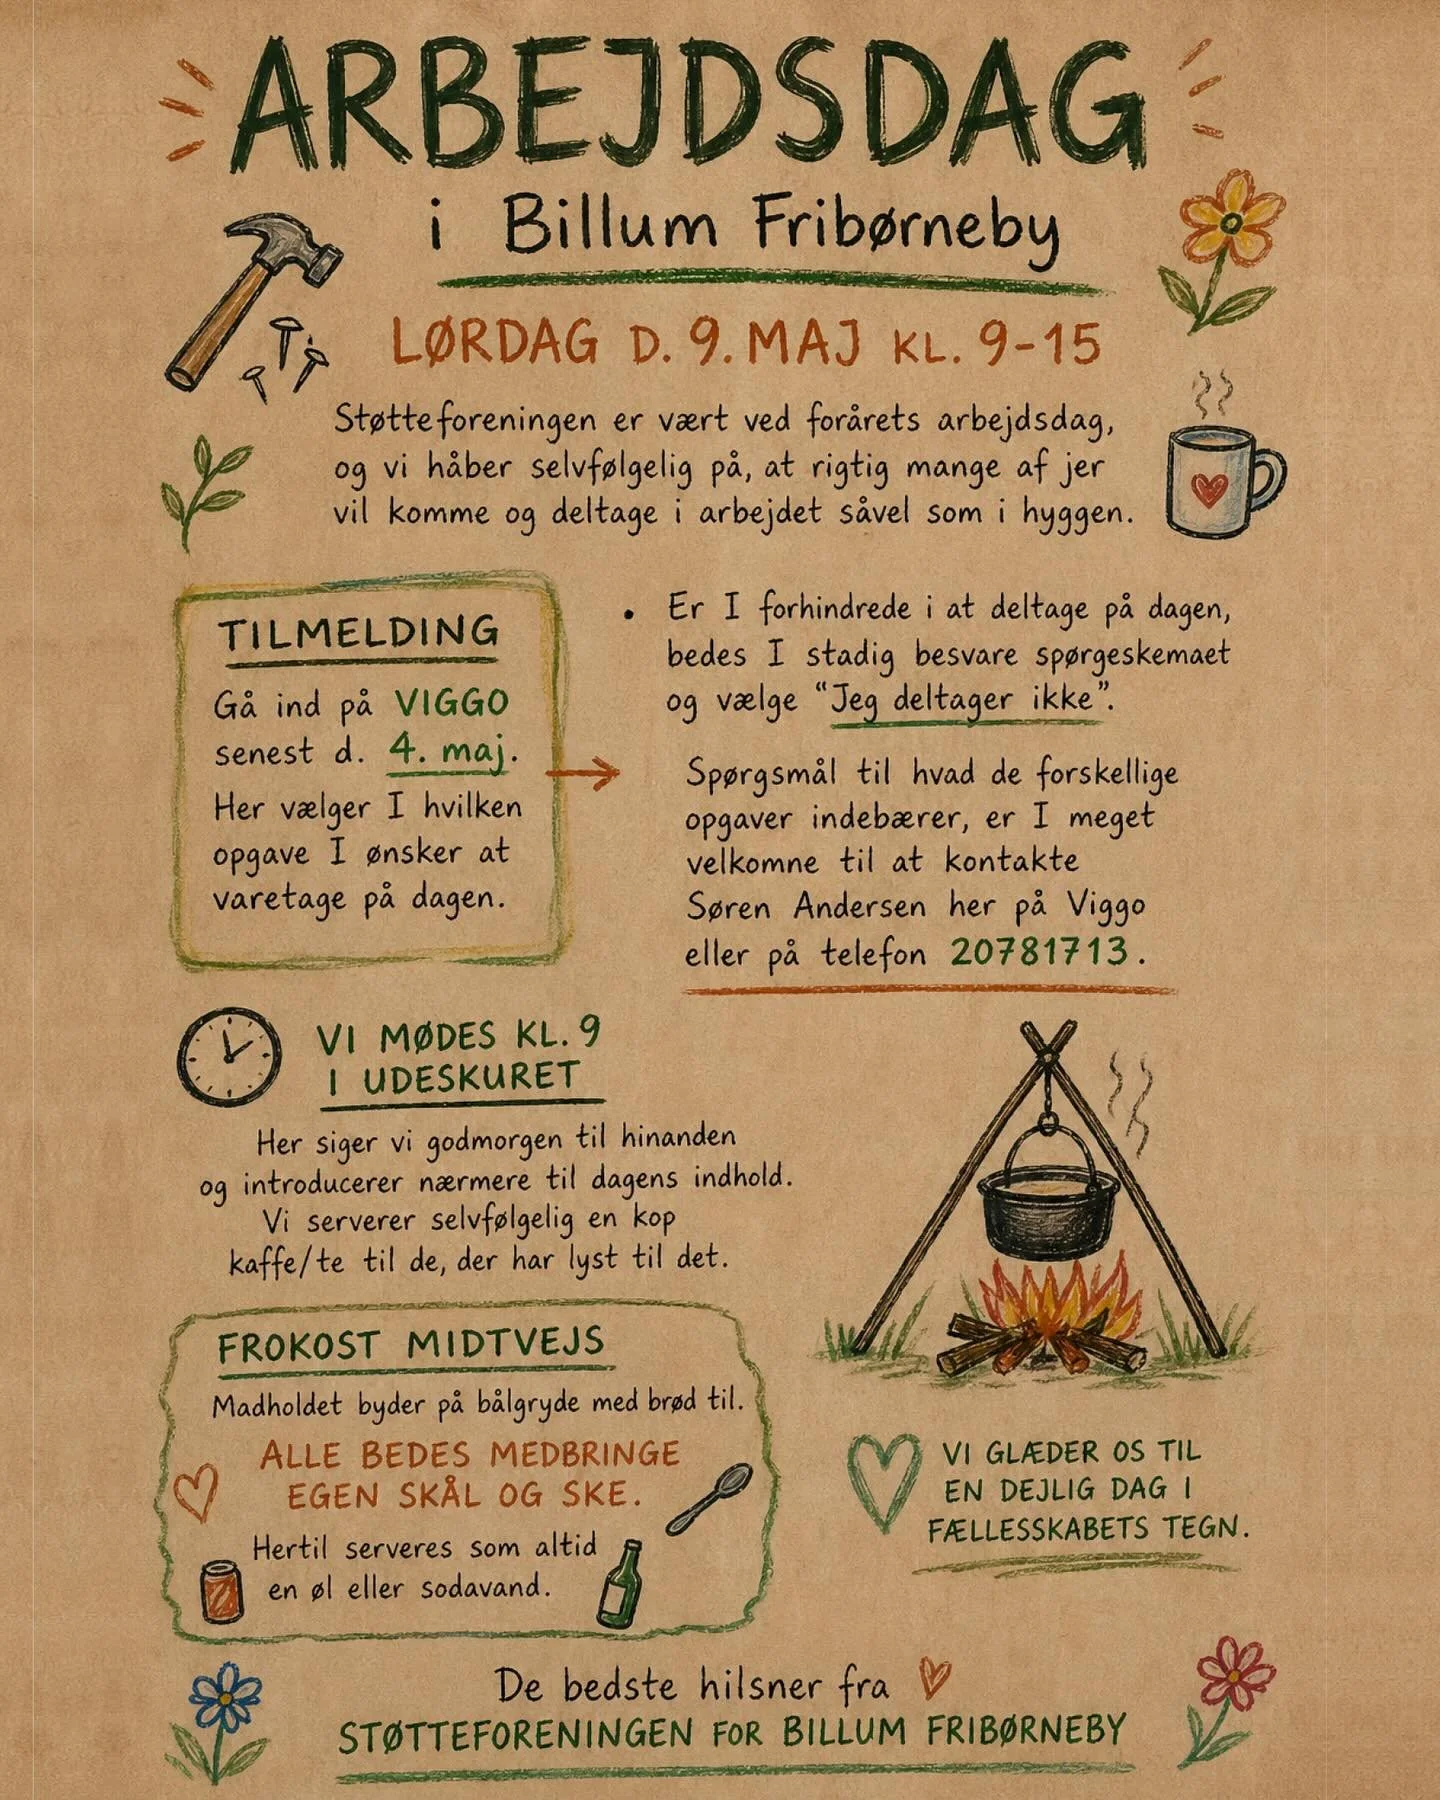 ARBEJDSDAG
i Billum Fribørneby
LØRDAG D. 9. MAJ KL. 9-15
Støtteforeningen er vært ved forårets arbejdsdag,
og vi håber selvfølgelig på, at rigtig mange af jer
vil komme og deltage i arbejdet såvel som i hyggen.
TILMELDING
Gå ind på VIGGO
senest d. 4. maj.
Her vælger I hvilken
opgave I ønsker at
varetage på dagen.
• Er I forhindrede i at deltage på dagen,
bedes I stadig besvare spørgeskemaet
og vælge “Jeg deltager ikke”.
Spørgsmål til hvad de forskellige
opgaver indebærer, er I meget
velkomne til at kontakte
Søren Andersen her på Viggo
eller på telefon 20781713.
VI MØDES KL. 9
I UDESKURET
Her siger vi godmorgen til hinanden
og introducerer nærmere til dagens indhold.
Vi serverer selvfølgelig en kop
kaffe/te til de, der har lyst til det.
FROKOST MIDTVEJS
Madholdet byder på bålgryde med brød til.
ALLE BEDES MEDBRINGE
EGEN SKÅL OG SKE.
Hertil serveres som altid
en øl eller sodavand.
VI GLÆDER OS TIL
EN DEJLIG DAG I
FÆLLESSKABETS TEGN.
De bedste hilsner fra
STØTTEFORENINGEN FOR BILLUM FRIBØRNEBY